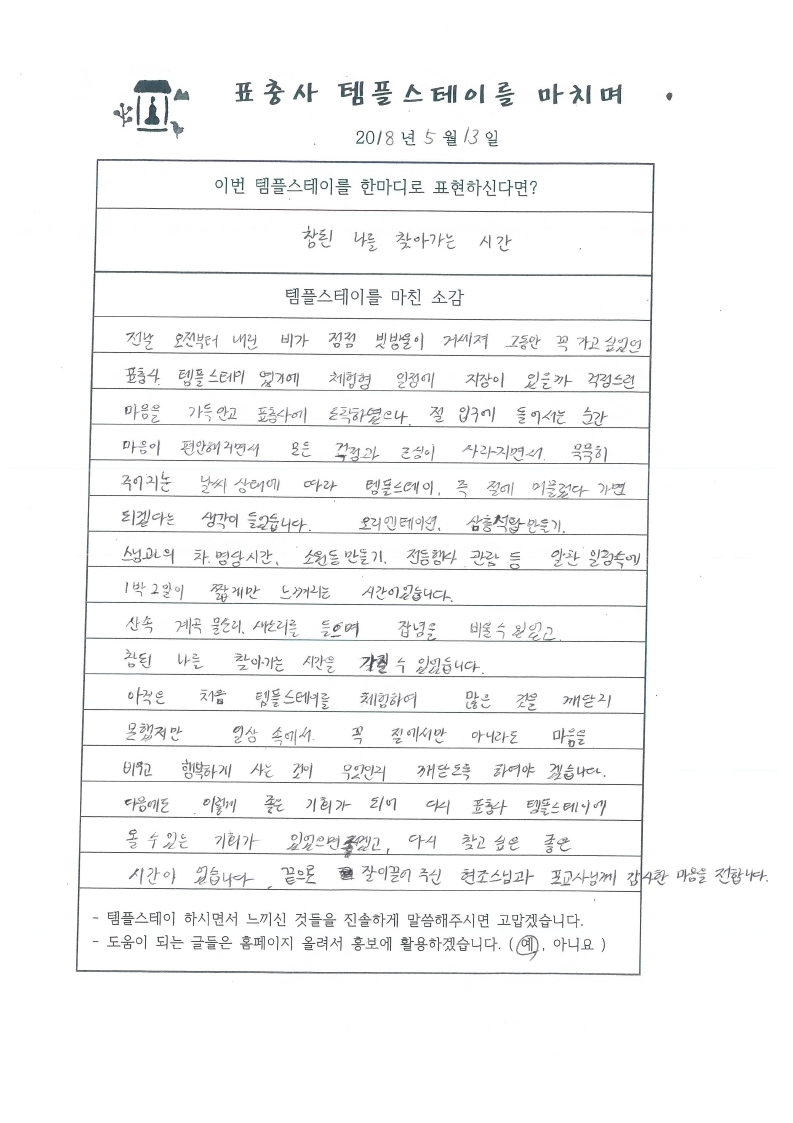 표충사 템플스테이를 마치며
2018년 5월 13일
이번 템플스테이를 한마디로 표현하신다면?
참된 나를 찾아가는 시간
템플스테이를 마친 소감
전날 오전부터 내린 비가 점점 빗방울이 거세져 그동안 꼭 가고 싶었던
표충사 템플스테이 였기에 체험형 일정에 지장이 있을까 걱정스런
마음을 가득안고 표충사에 도착하였으나, 절 입구에 들어서는 순간
마음이 편안해지면서 모든 걱정과 근심이 사라지면서 묵묵히
주어지는 날씨 상태에 따라 템플스테이, 즉 절에 머물렀다 가면
되겠다는 생각이 들었습니다. 오리엔테이션, 삼층석탑만들기,
스님과의 차.명상시간, 소원등만들기, 전등행사 관람 등 알찬 일정속에
1박 2일이 짧게만 느껴지는 시간이었습니다.
산속 계곡 물소리, 새소리를 들으며 잡념을 비울 수 있었고,
참된 나를 찾아가는 시간을 가질 수 있었습니다.
아직은 처음 템플스테이를 체험하여 많은 것을 깨닫지
못했지만 일상 속에서 꼭 절에서만 아니라도 마음을
비우고 행복하게 사는 것이 무엇인지 깨닫도록 하여야 겠습니다.
다음에도 이렇게 좋은 기회가 되어 다시 표충사 템플스테이에
올 수 있는 기회가 있었으면 좋겠고, 다시 찾고 싶은 좋은
시간이 었습니다. 끝으로 잘이끌어 주신 현조스님과 포교사님께 감사한 마음을 전합니다.
- 템플스테이 하시면서 느끼신 것들을 진솔하게 말씀해주시면 고맙겠습니다.
- 도움이 되는 글들은 홈페이지 올려서 홍보에 활용하겠습니다. ( 예 , 아니요 )